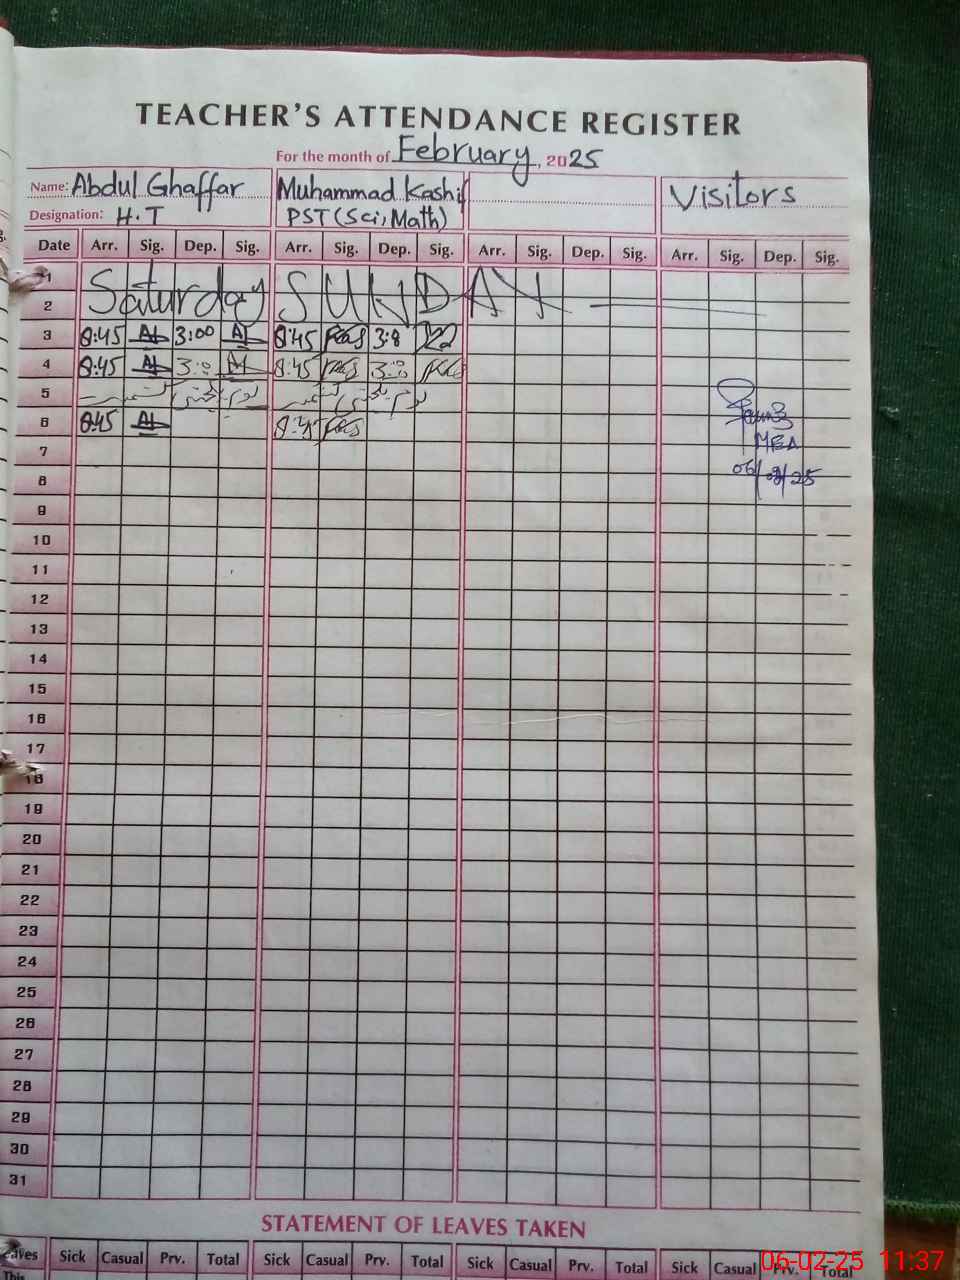 TEACHER'S ATTENDANCE REGISTER
For the month of February, 2025
Name: Abdul Ghaffar Muhammad Kashif Visitors
Designation: H.T PST (Sci, Math)
Date Arr. Sig. Dep. Sig. Arr. Sig. Dep. Sig. Arr. Sig. Dep. Sig. Arr. Sig. Dep. Sig.
1
2 Saturday SUNDAY
3 8:45 3:00 8:45 3:8
4 8:45 3:0 8:45 3:0
5 یوم یکجہتی کشمیر یوم یکجہتی کشمیر
6 8:45 8:45
7 MEA
8 06/02/25
9
10
11
12
13
14
15
16
17
18
19
20
21
22
23
24
25
26
27
28
29
30
31
STATEMENT OF LEAVES TAKEN
Sick Casual Prv. Total Sick Casual Prv. Total Sick Casual Prv. Total Sick Casual Prv. Total
This
06-02-25 11:37